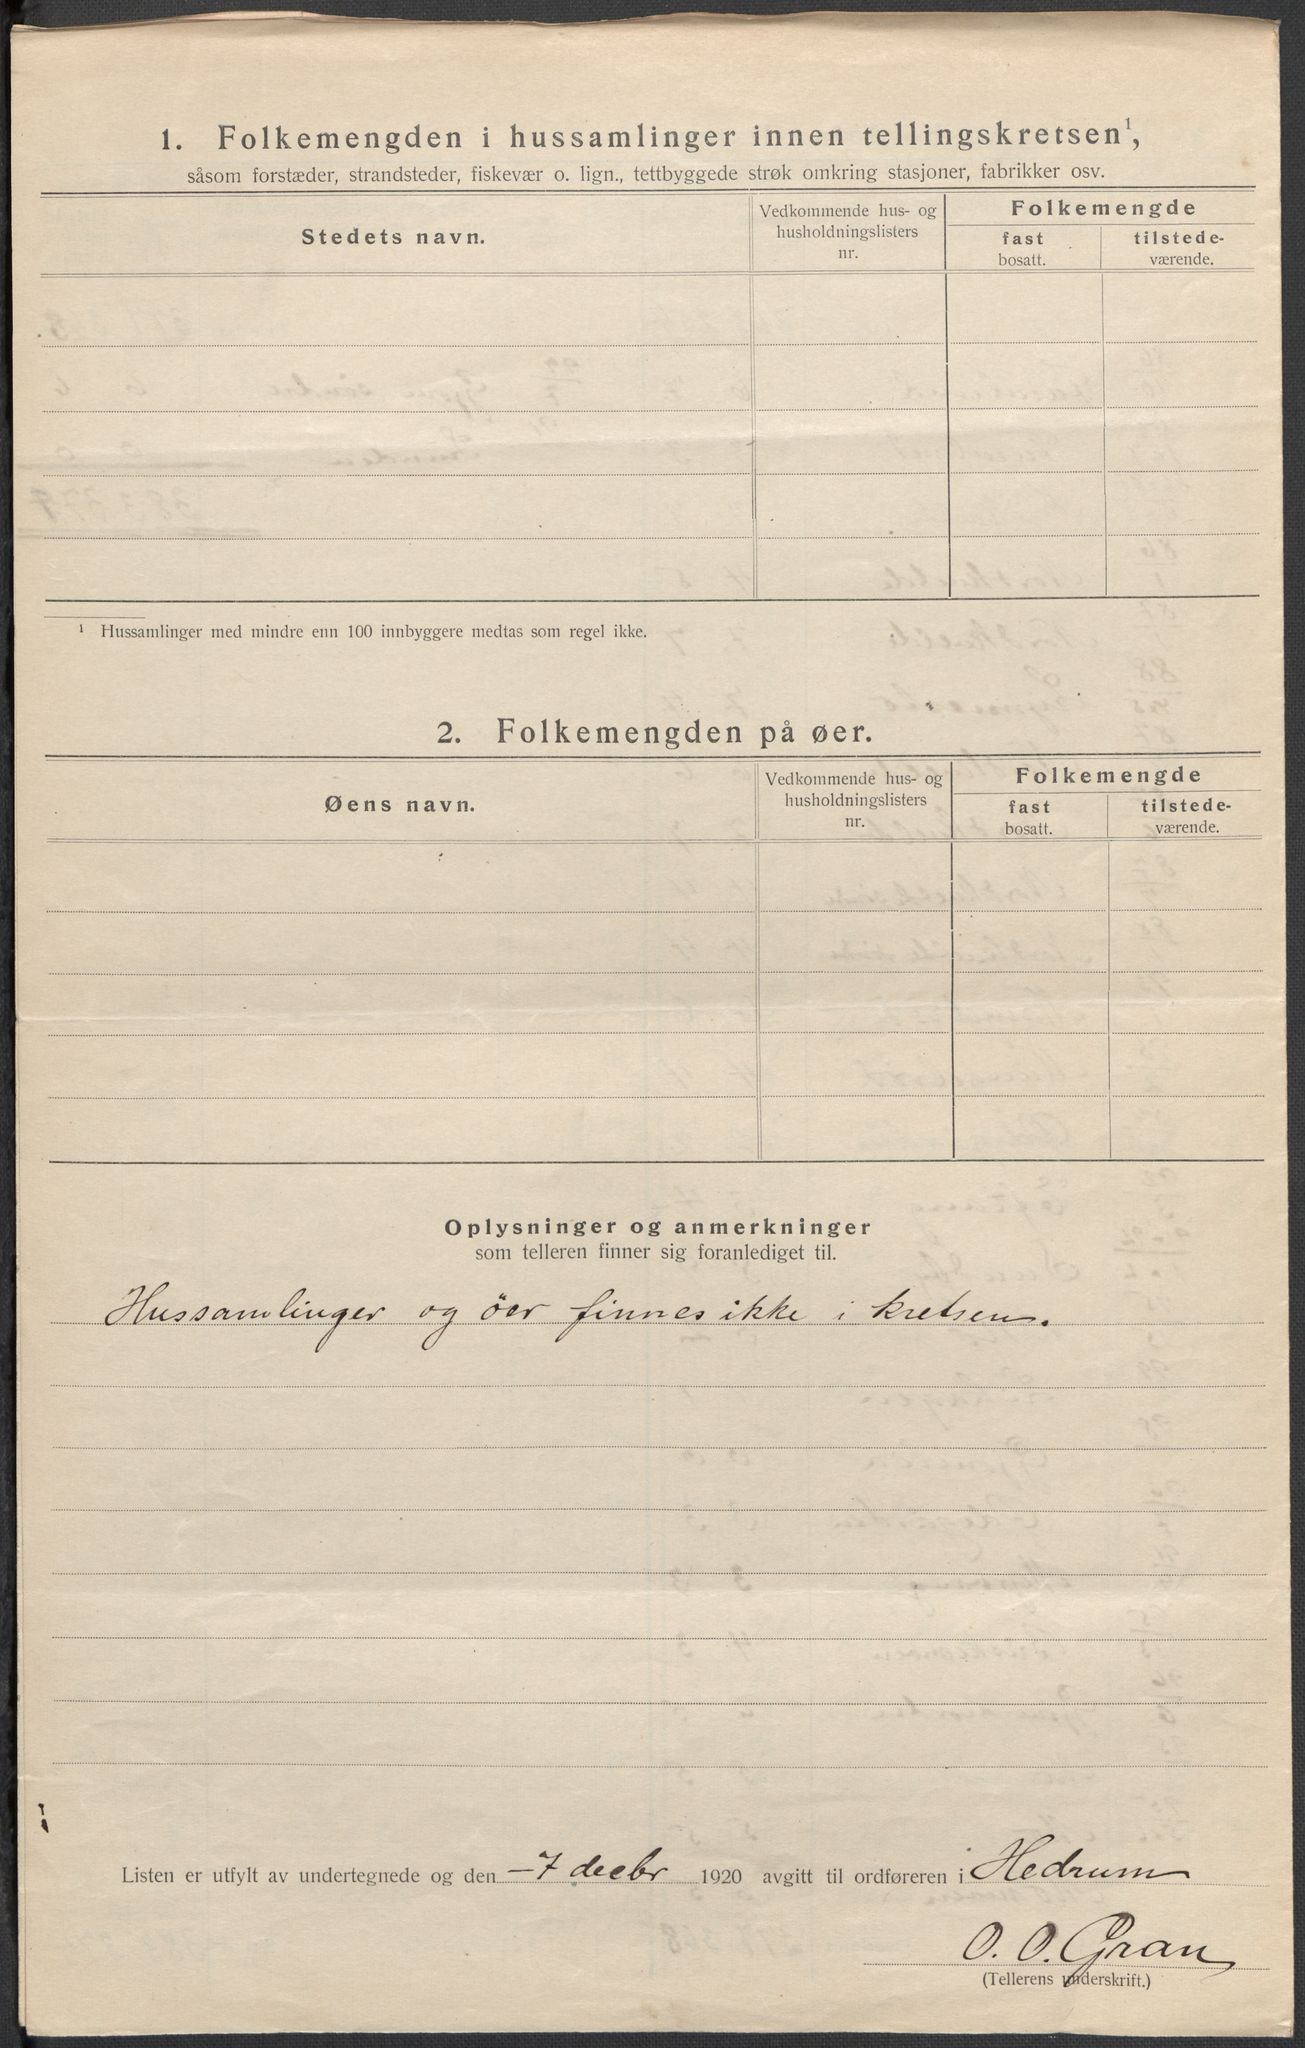 1. Folkemengden i hussamlinger innen tellingskretsen¹,
såsom forstæder, strandsteder, fiskevær o. lign., tettbyggede strøk omkring stasjoner, fabrikker osv.
Stedets navn.
Vedkommende hus- og
husholdningslisters
nr.
Folkemengde
fast
bosatt.
tilstede-
værende.
¹ Hussamlinger med mindre enn 100 innbyggere medtas som regel ikke.
2. Folkemengden på øer.
Øens navn.
Vedkommende hus- og
husholdningslisters
nr.
Folkemengde
fast
bosatt.
tilstede-
værende.
Oplysninger og anmerkninger
som telleren finner sig foranlediget til.
Hussamlinger og öer finnes ikke i kretsen.
Listen er utfylt av undertegnede og den -7 decbr 1920 avgitt til ordføreren i Hedrum
O. O. Gran
(Tellerens underskrift.)